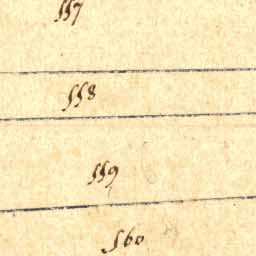 557
558
559
560